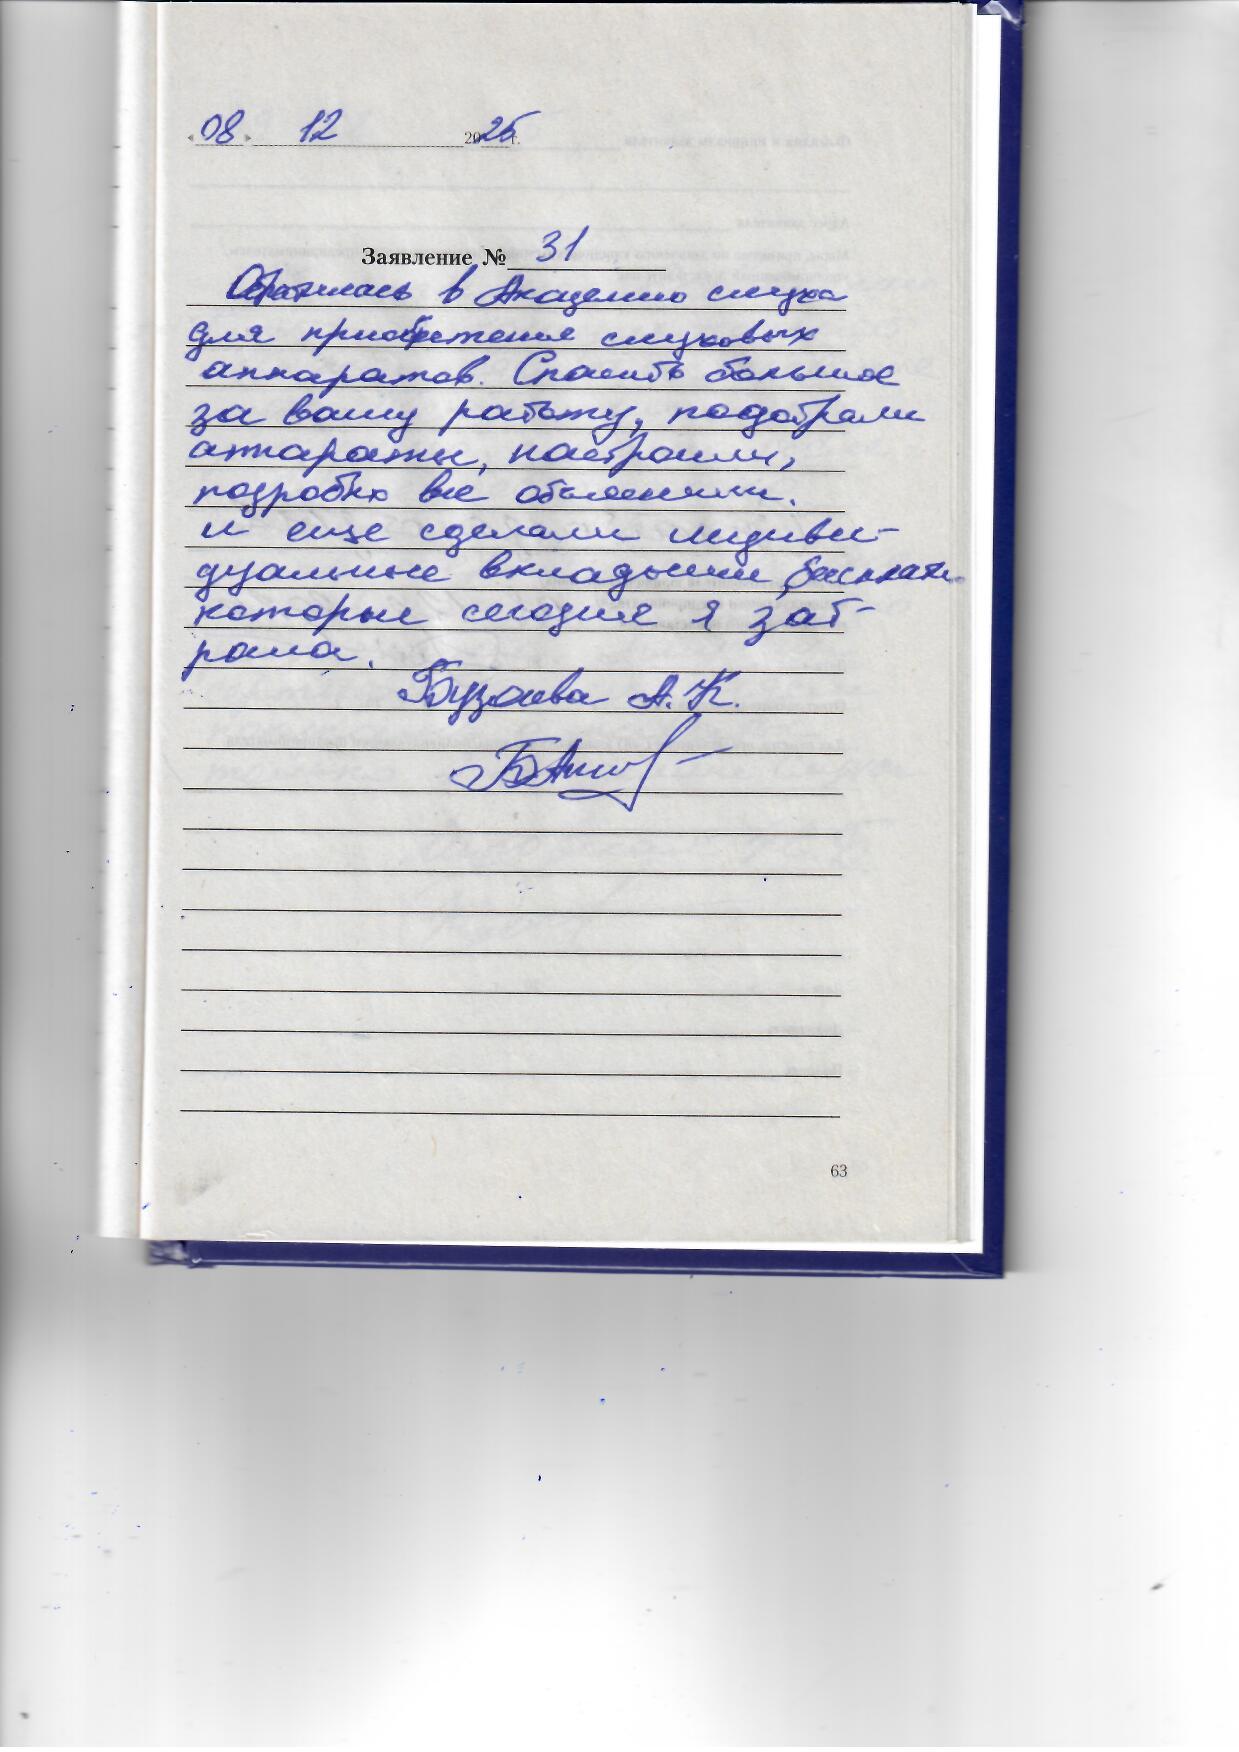 «08» 12 2025 г.
Заявление № 31
Обратилась в Академию слуха
для приобретения слуховых
аппаратов. Спасибо большое
за вашу работу, подобрали
аппараты, настроили,
подробно все объяснили.
и еще сделали индиви-
дуальные вкладыши бесплатно
которые сегодня я заб-
рала.
Бузаева А. К.
63